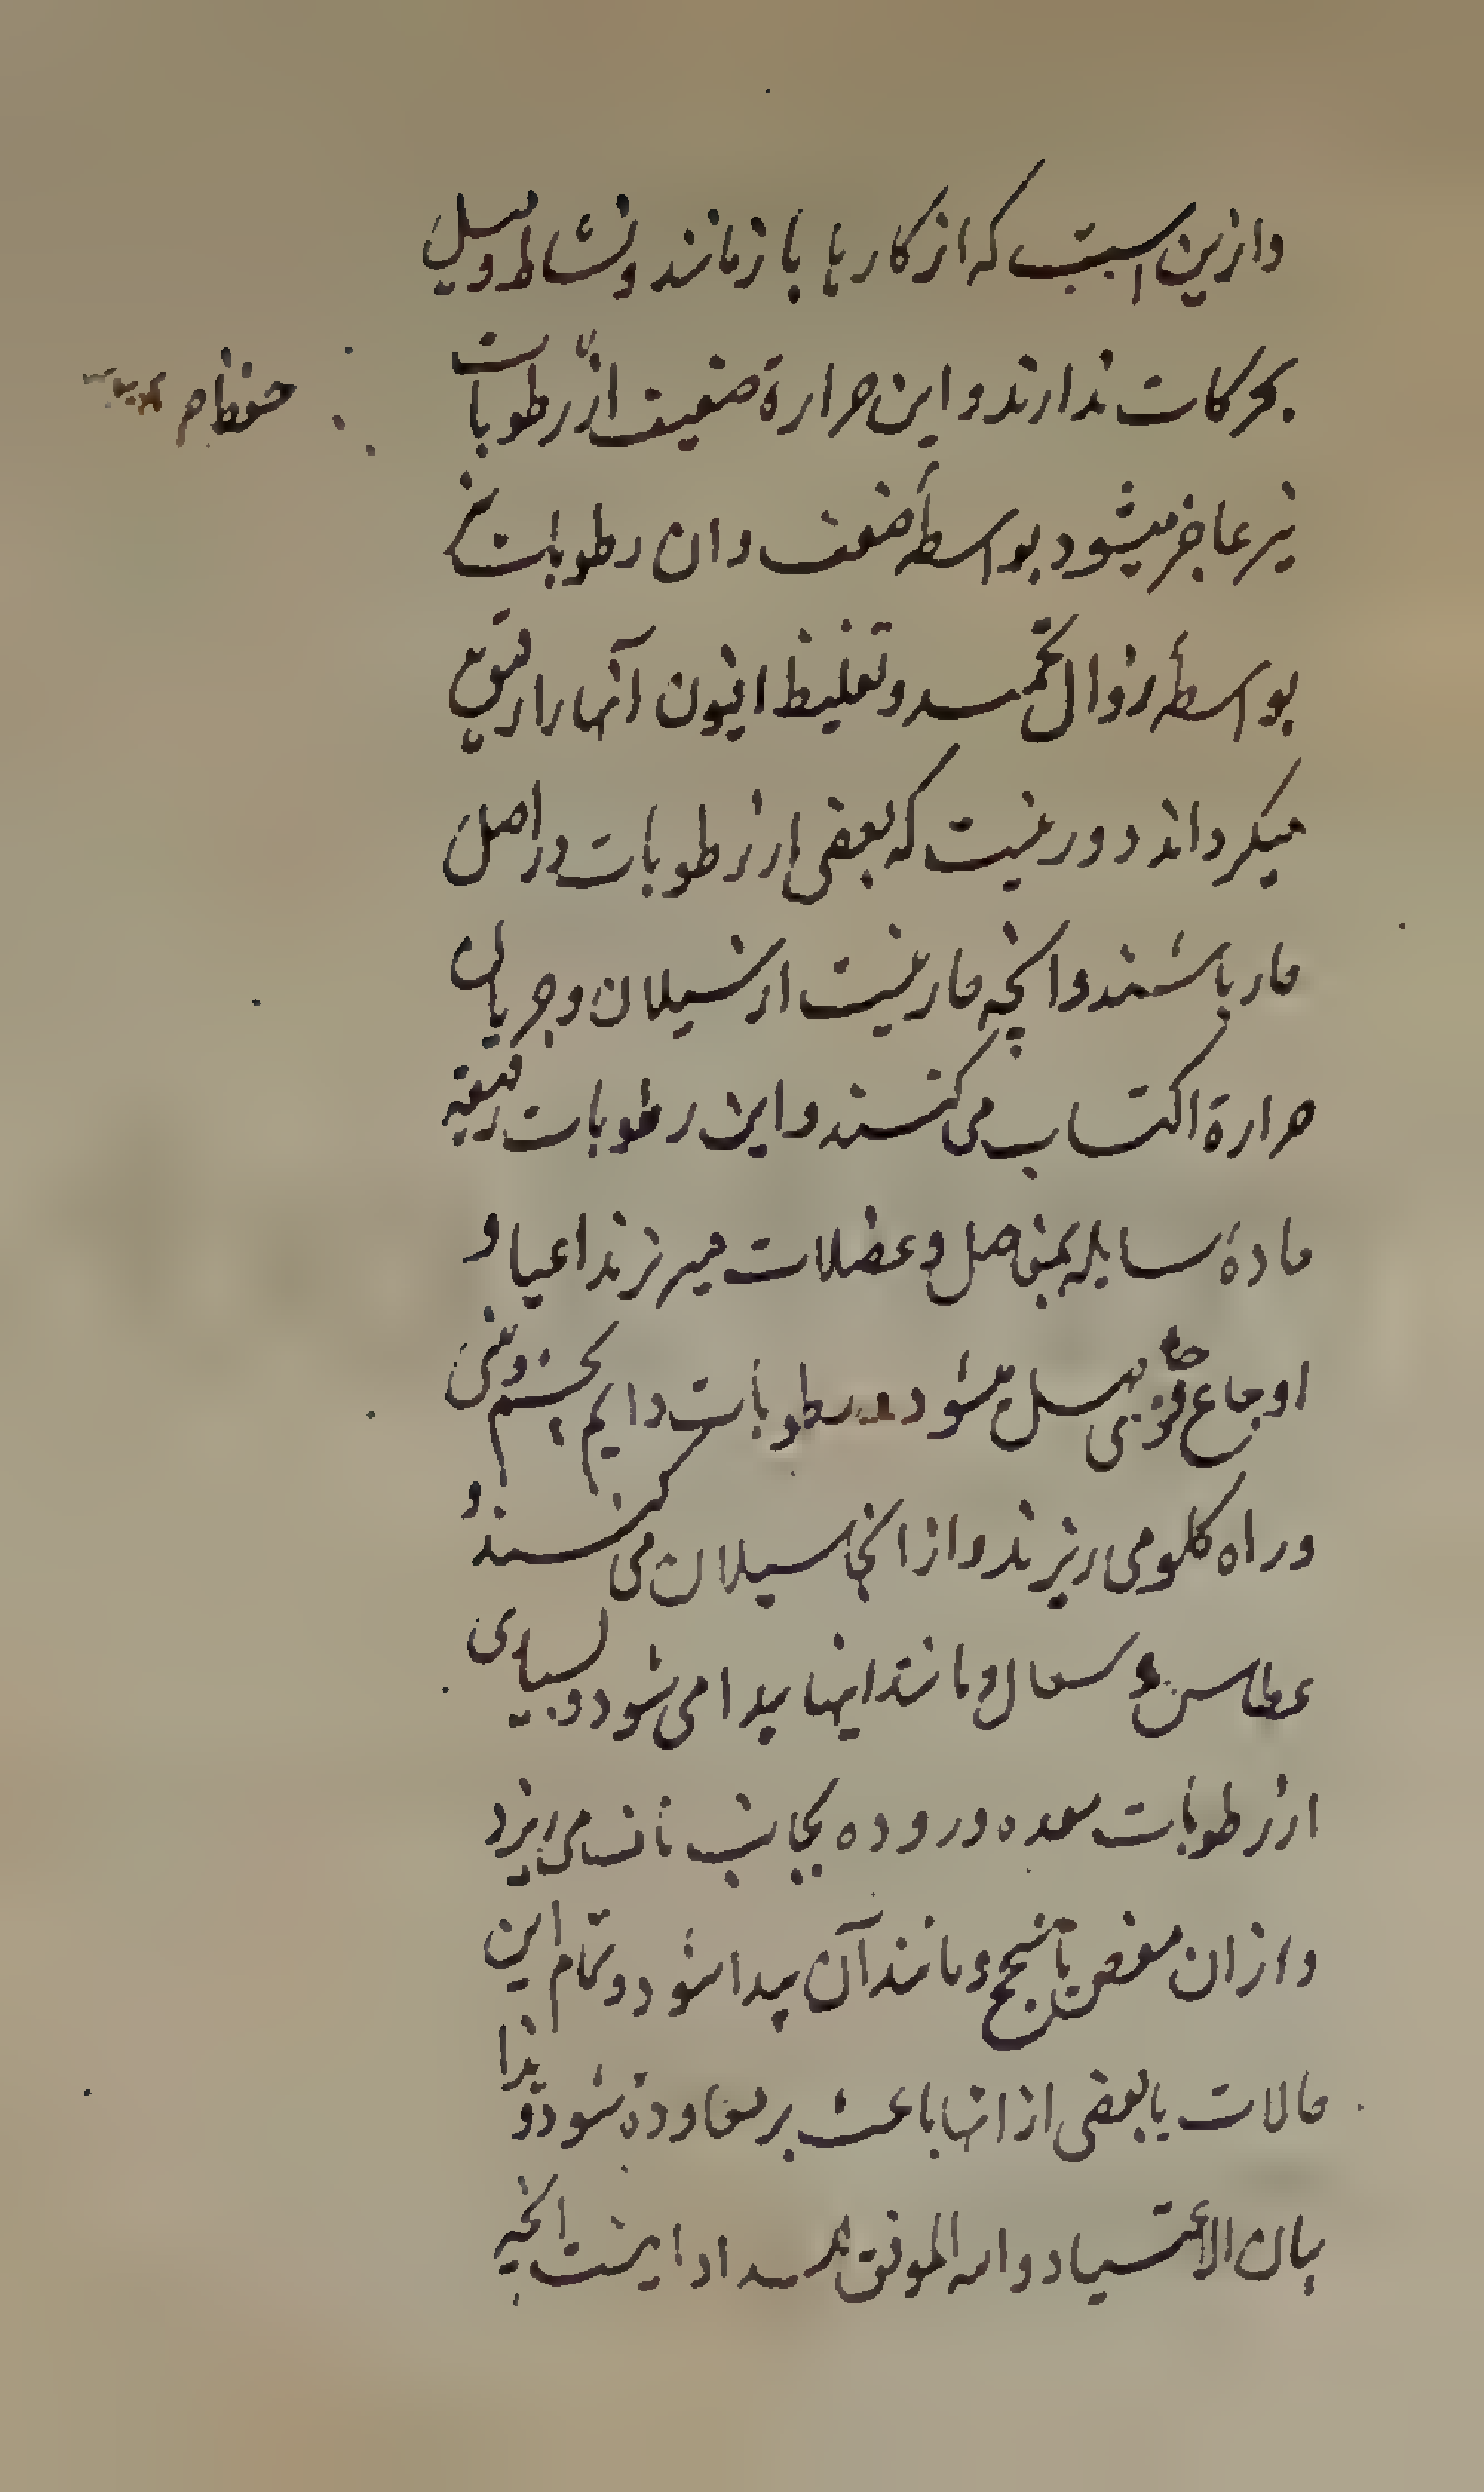 وازین است که از کارها باز مانند و نشاط و میل
بحرکات ندارند و این حرارة ضعیف از آن رطوبات
نیز عاجز میشود بواسطهٔ ضعف و ان رطوبات نیز
بواسطهٔ زوال مخمد و تغلیظ افیون آنها را رقیق
میگرداند و دور نیست که بعضی از رطوبات در اصل
حار باشند و آنچه حار نیست از سیلان و جریان
حرارة اکتساب می کنند و این رطوبات رقیقه
حادهٔ سایله بمفاصل و عضلات میریزند اعیا و
اوجاع قوی میشود و رطوبات دایم بچشم و بینی
و راه گلو می ریزند و از انجا سیلان می کنند و
عطاس و سعال و مانند اینها پیدا می شود و بسیاری
از رطوبات معده و روده بجانب ناف می ریزد
و از ان مغص یا سحج و مانند آن پیدا شود و تمام این
حالات یا بعضی از انها باعث بر معاوده شود و هذا
بیان الاعتیاد والله الموفق للسداد اینست انچه